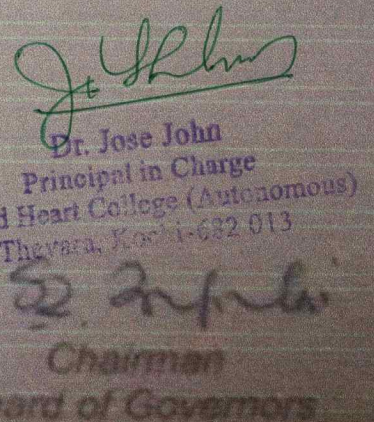 Dr. Jose John
Principal in Charge
d Heart College (Autonomous)
Thevara, Kochi-682 013
Chairman
ard of Governors